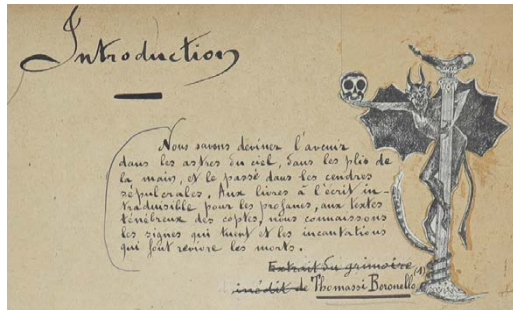 Introduction
Nous savons deviner l'avenir
dans les astres du ciel, dans les plis de
la main, et le passé dans les cendres
sépulcrales. Aux livres à l'écrit in-
traduisible pour les profanes, aux textes
ténébreux des coptes, nous connaissons
les signes qui tuent et les incantations
qui font revivre les morts.
Extrait du grimoire (1)
inédit de Thomassi Boronello